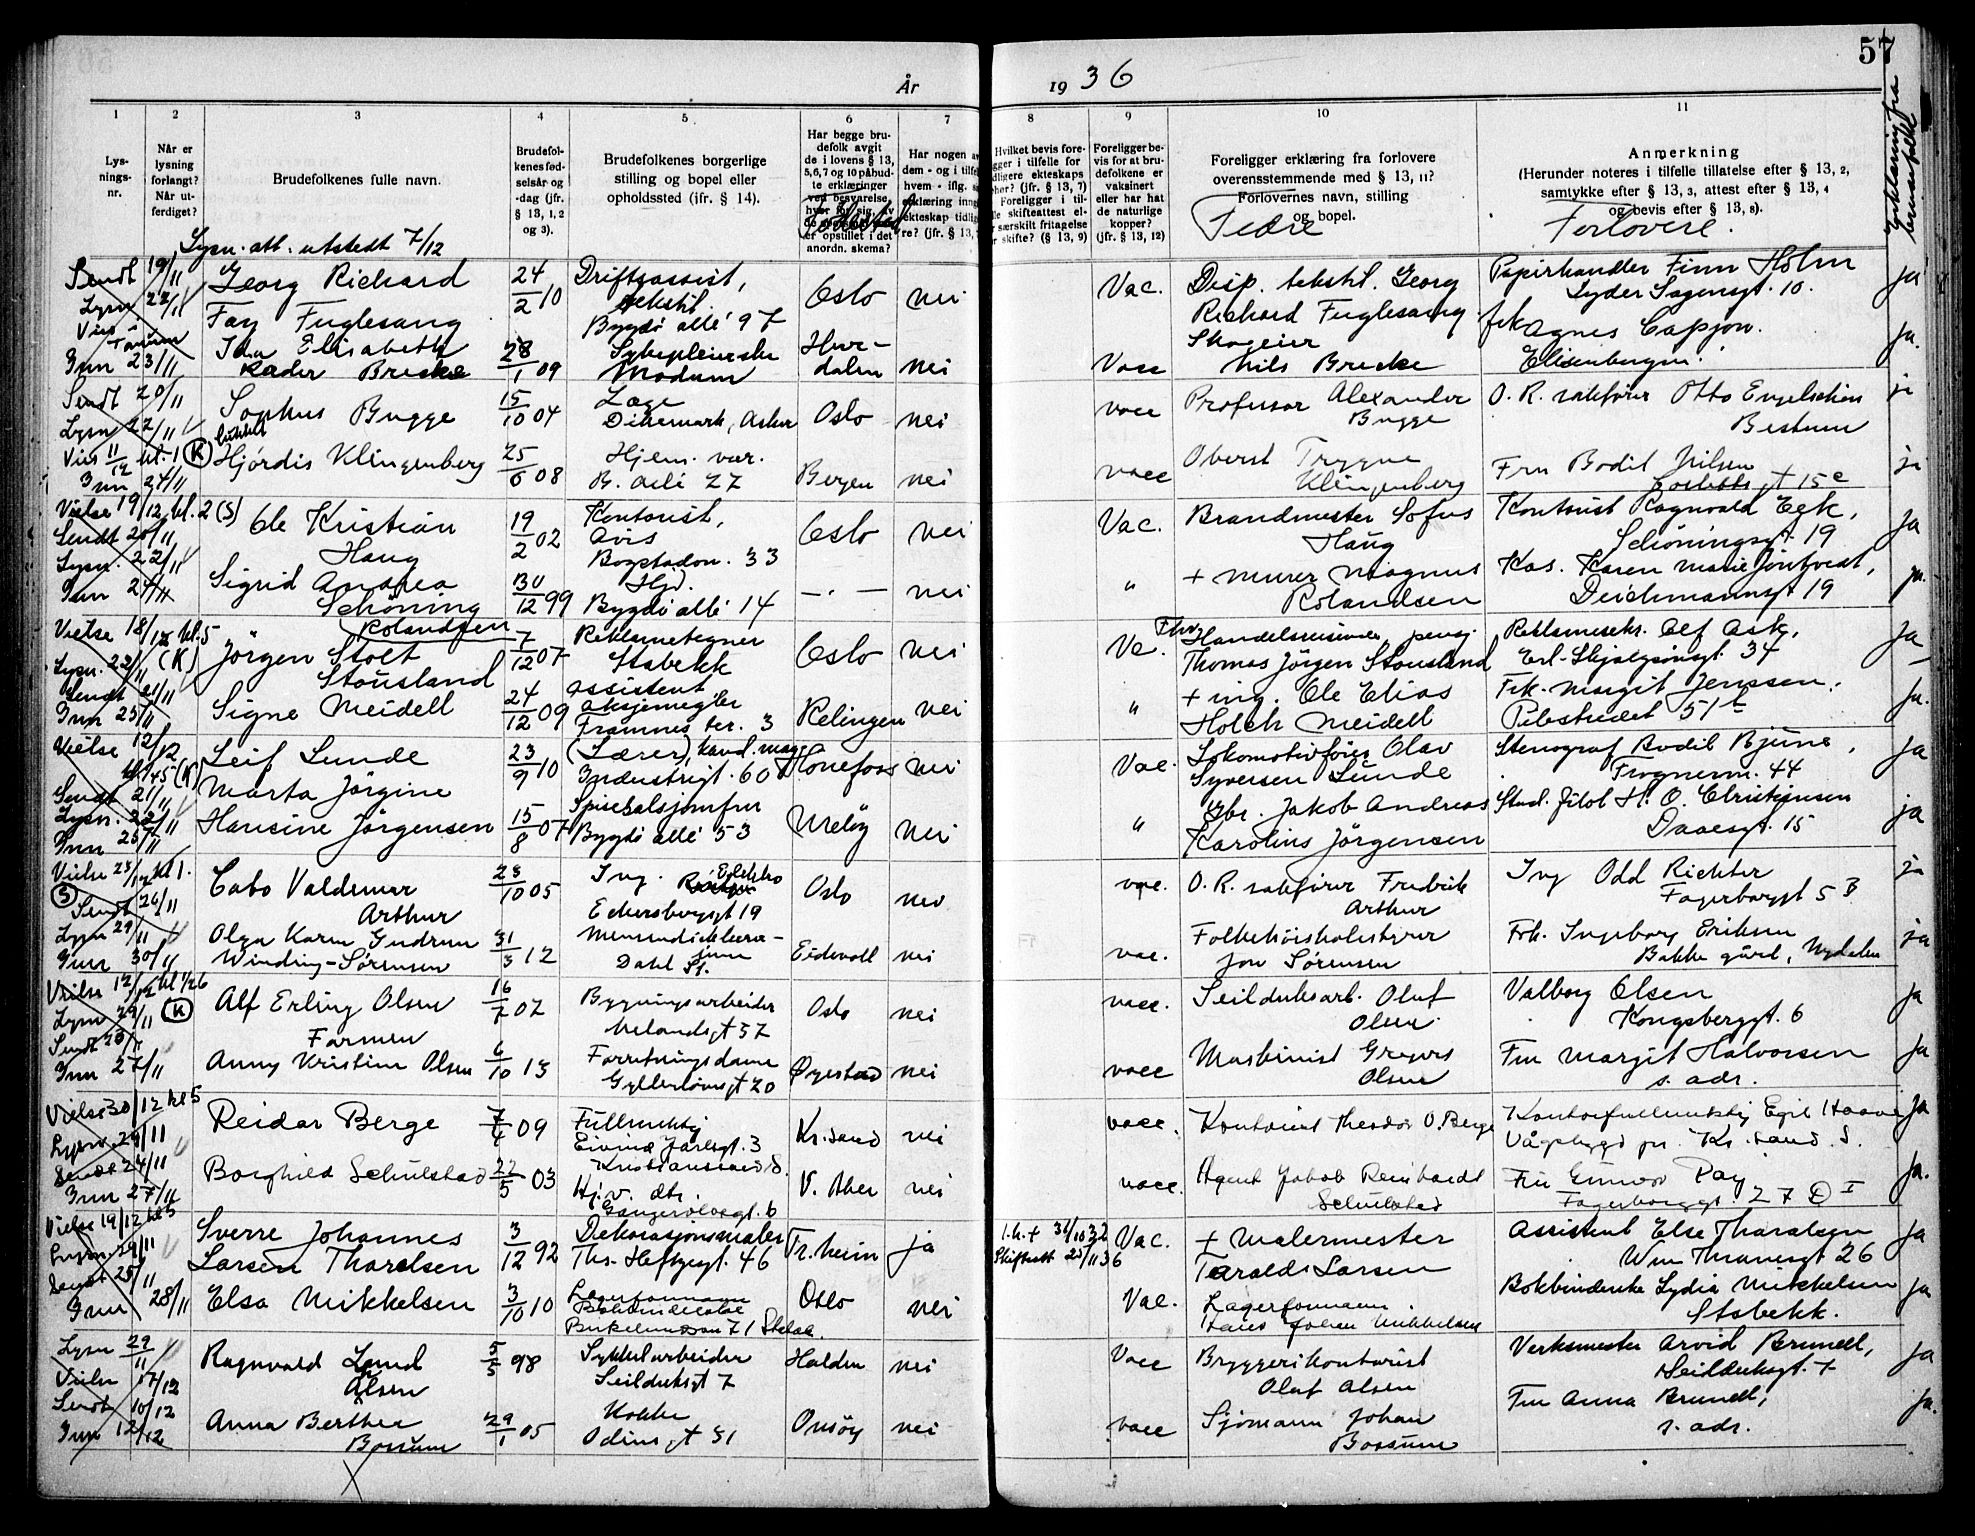 57
År 1936
1 2 3 4 5 6 7 8 9 10 11
Lys-
nings-
nr.
Når er
lysning
forlangt?
Når ut-
ferdiget?
Brudefolkenes fulle navn.
Brudefol-
kenes fød-
selsår og
-dag (jfr.
§ 13, 1, 2
og 3).
Brudefolkenes borgerlige
stilling og bopel eller
opholdssted (jfr. § 14).
Har begge bru-
defolk avgit
de i lovens § 13,
5, 6, 7 og 10 påbud-
te erklæringer
Fødested
er opstillet i det
anordn. skema?
Har nogen av
dem - og i tilfelle
hvem - iflg.
erklæring inngått
ekteskap tidlige-
re? (jfr. § 13,
Hvilket bevis fore-
ligger i tilfelle for
tidligere ekteskaps
ophør? (jfr. § 13, 7)
Foreligger i til-
felle skifteattest el-
ler særskilt fritagelse
for skifte? (§ 13, 9)
Foreligger be-
vis for at bru-
defolkene er
vaksinert
eller har hat
de naturlige
kopper?
(jfr. § 13, 12)
Foreligger erklæring fra forlovere
overensstemmende med § 13, 11?
Forlovernes navn, stilling
og bopel.
Fedre
Anmerkning
(Herunder noteres i tilfelle tillatelse efter § 13, 2,
samtykke efter § 13, 3, attest efter § 13, 4
og bevis efter § 13, 8).
Forlovere.
Erklæring fra
brudefolk
Lysn. att. utstedt 7/12
Sendt 19/11 Georg Richard 24/2 10 Driftsassist, Oslo nei Vac. Disp. tekstil. Georg Papirhandler Finn Holm ja
Lysn 22/11 Fay Fuglesang tekstil. Bygdø allé 97 Richard Fuglesang Lyder Sagensgt. 10.
Ida Elisabeth Sykepleierske Hur- Skogeier frk Agnes Capjon. ja.
Inn 23/11 Rader Brecke 28/1 09 Modum dalen nei Vacc Nils Brecke Elisenbergvn.
Sendt 20/11 Sophus Bugge 15/10 04 Læge Oslo nei vacc Professor Alexander O. R. sakfører Otto Engelschiøn ja
Lysn 22/11 Dikemark, Asker Bugge Bestum
Vies 11/12 kl. 1 (K) Hjördis Klingenberg 25/6 08 Hjem. vær. Oberst Trygve Fru Bodil Nilsen ja
Inn 24/11 B. allé 27 Bergen nei vacc Klingenberg 15 c
Vielse 19/12 kl. 2 (S) Ole Kristian 19/2 02 Kontorist, Oslo nei Vac. Brandmester Sofus Kontorist Ragnvald Egk, ja
Sendt 20/11 Haug Avis Haug Schöningsgt. 19
Lysn. 22/11 Bogstadvn. 33
Inn 24/11 Sigrid Andrea 30/12 99 Hjd. — . — nei " + murer Magnus Kas. Karen Marie Jöntvedt, ja.
Schöning Bygdö allé 14 Rolandsen Deichmannsgt 19
Rolandsen
Vielse 18/12 kl. 5 (K) Jörgen Stolt 7/12 07 Reklametegner Oslo nei Va. Handelsreisende Reklamesekr. Olf Ask, ja
Lysn. 22/11 Stousland Stabekk Thomas Jörgen Stousland Erl. Skjalgsönsgt. 34
Sendt 21/11 Signe Meidell 24/12 09 assistent aksjemegler Rælingen nei " + ing. Ole Elias Frk. Margit Jenssen, ja.
Inn 25/11 Framnes ter. 3 Holck Meidell Pilestredet 51
Vielse 12/12 Leif Lunde 23/9 10 (Lærer), kand. mag. Hönefoss nei Vac. Lokomotivfører Olav Stenograf Bodil Bjune, ja
(K) Industrigt. 60 Syversen Lunde Frognervn. 44
Sendt 21/11 Marta Jörgine Spisesalsjomfru Gbr. Jakob Andreas Stud. filol H. O. Christiansen ja
Lysn. 22/11 Hansine Jörgensen 15/8 07 Bygdö allé 53 nei " Karolius Jörgensen Daaesgt. 15
Inn 25/11
Vielse 23/12 kl 1. Cato Valdemar 23/10 05 Ing. Elektro Oslo nei vac. O. R. sakfører Fredrik Ing Odd Richter ja
(S) Sendt 26/11 Arthur Eckersbergsgt 19 Arthur Fagerborggt 5 B
Lysn 29/11 Olga Karen Gudrun 31/3 12 Mensendieklærer- Eidsvoll nei vac. Folkehöiskolestyrer Frk. Ingeborg Eriksen ja
Inn 30/11 Winding-Sörensen inne Dahl St. Jon Sörensen Bakke gård, Nydalen
Vielse 12/12 Alf Erling Olsen 16/7 02 Bygningsarbeider Oslo nei vacc. Seilduksarb. Oluf Valborg Olsen ja
Lysn 29/11 (K) Farmen Melandsgt 37 Olsen Kongsberggt. 6
Inn 27/11 Anny Kristine Olsen 6/10 13 Forretningsdame Øyestad nei vacc Maskinist Gregers Fru Margit Halvorsen ja
Gyldenlövsgt 20 Olsen s. adr.
Vielse 30/12 kl 5 Reidar Berge 7/4 09 Fullmektig Kr.sand nei vacc. Kontorist Theodor O. Berge Kontorfullmektig Egil Haave ja
Lysn 29/11 Eivind Jarlsgt. 3 Kristiansand S. Vågsbygd pr. Kr. sand. S.
Sendt 24/11 Borghild Schulstad 22/5 03 Hj. v. dtr. V. Aker nei vacc. Agent Jakob Reinhardt Fru Gunvor Ray ja.
Inn 27/11 Schulstad Fagerborggt. 27 D I
Vielse 19/12 kl 5 Sverre Johannes 3/12 92 Dekorasjonsmaler Tr.heim ja Skifteatt 25/11 36 Vac. + Malermester Assistent Else Tharalsen ja
Lysn. 29/11 Larsen Tharalsen Ths. Heftyesgt. 46 Tarald Larsen Wm Thranesgt 26
Sendt 25/11 Elsa Mikkelsen 3/10 10 Oslo nei Vac. Lagerformann Bokbinderske Lydia Mikkelsen ja
Inn 28/11 Hans Johan Mikkelsen Stabekk.
Lysn 29/11 Ragnvald Lund 5/5 98 Sykkelarbeider Halden nei Vacc Bryggerikontorist Verksmester Arvid Brunell, ja
Vielse 17/12 Olsen Seilduksgt 7 Oluf Olsen Seilduksgt. 7
Sendt 10/12 Anna Berthea 29/1 05 Kokke Onsöy nei vacc Sjömann Johan Fru Anna Brunell, ja.
Inn 12/12 Bossum Odinsgt 31 Bossum s. adr.